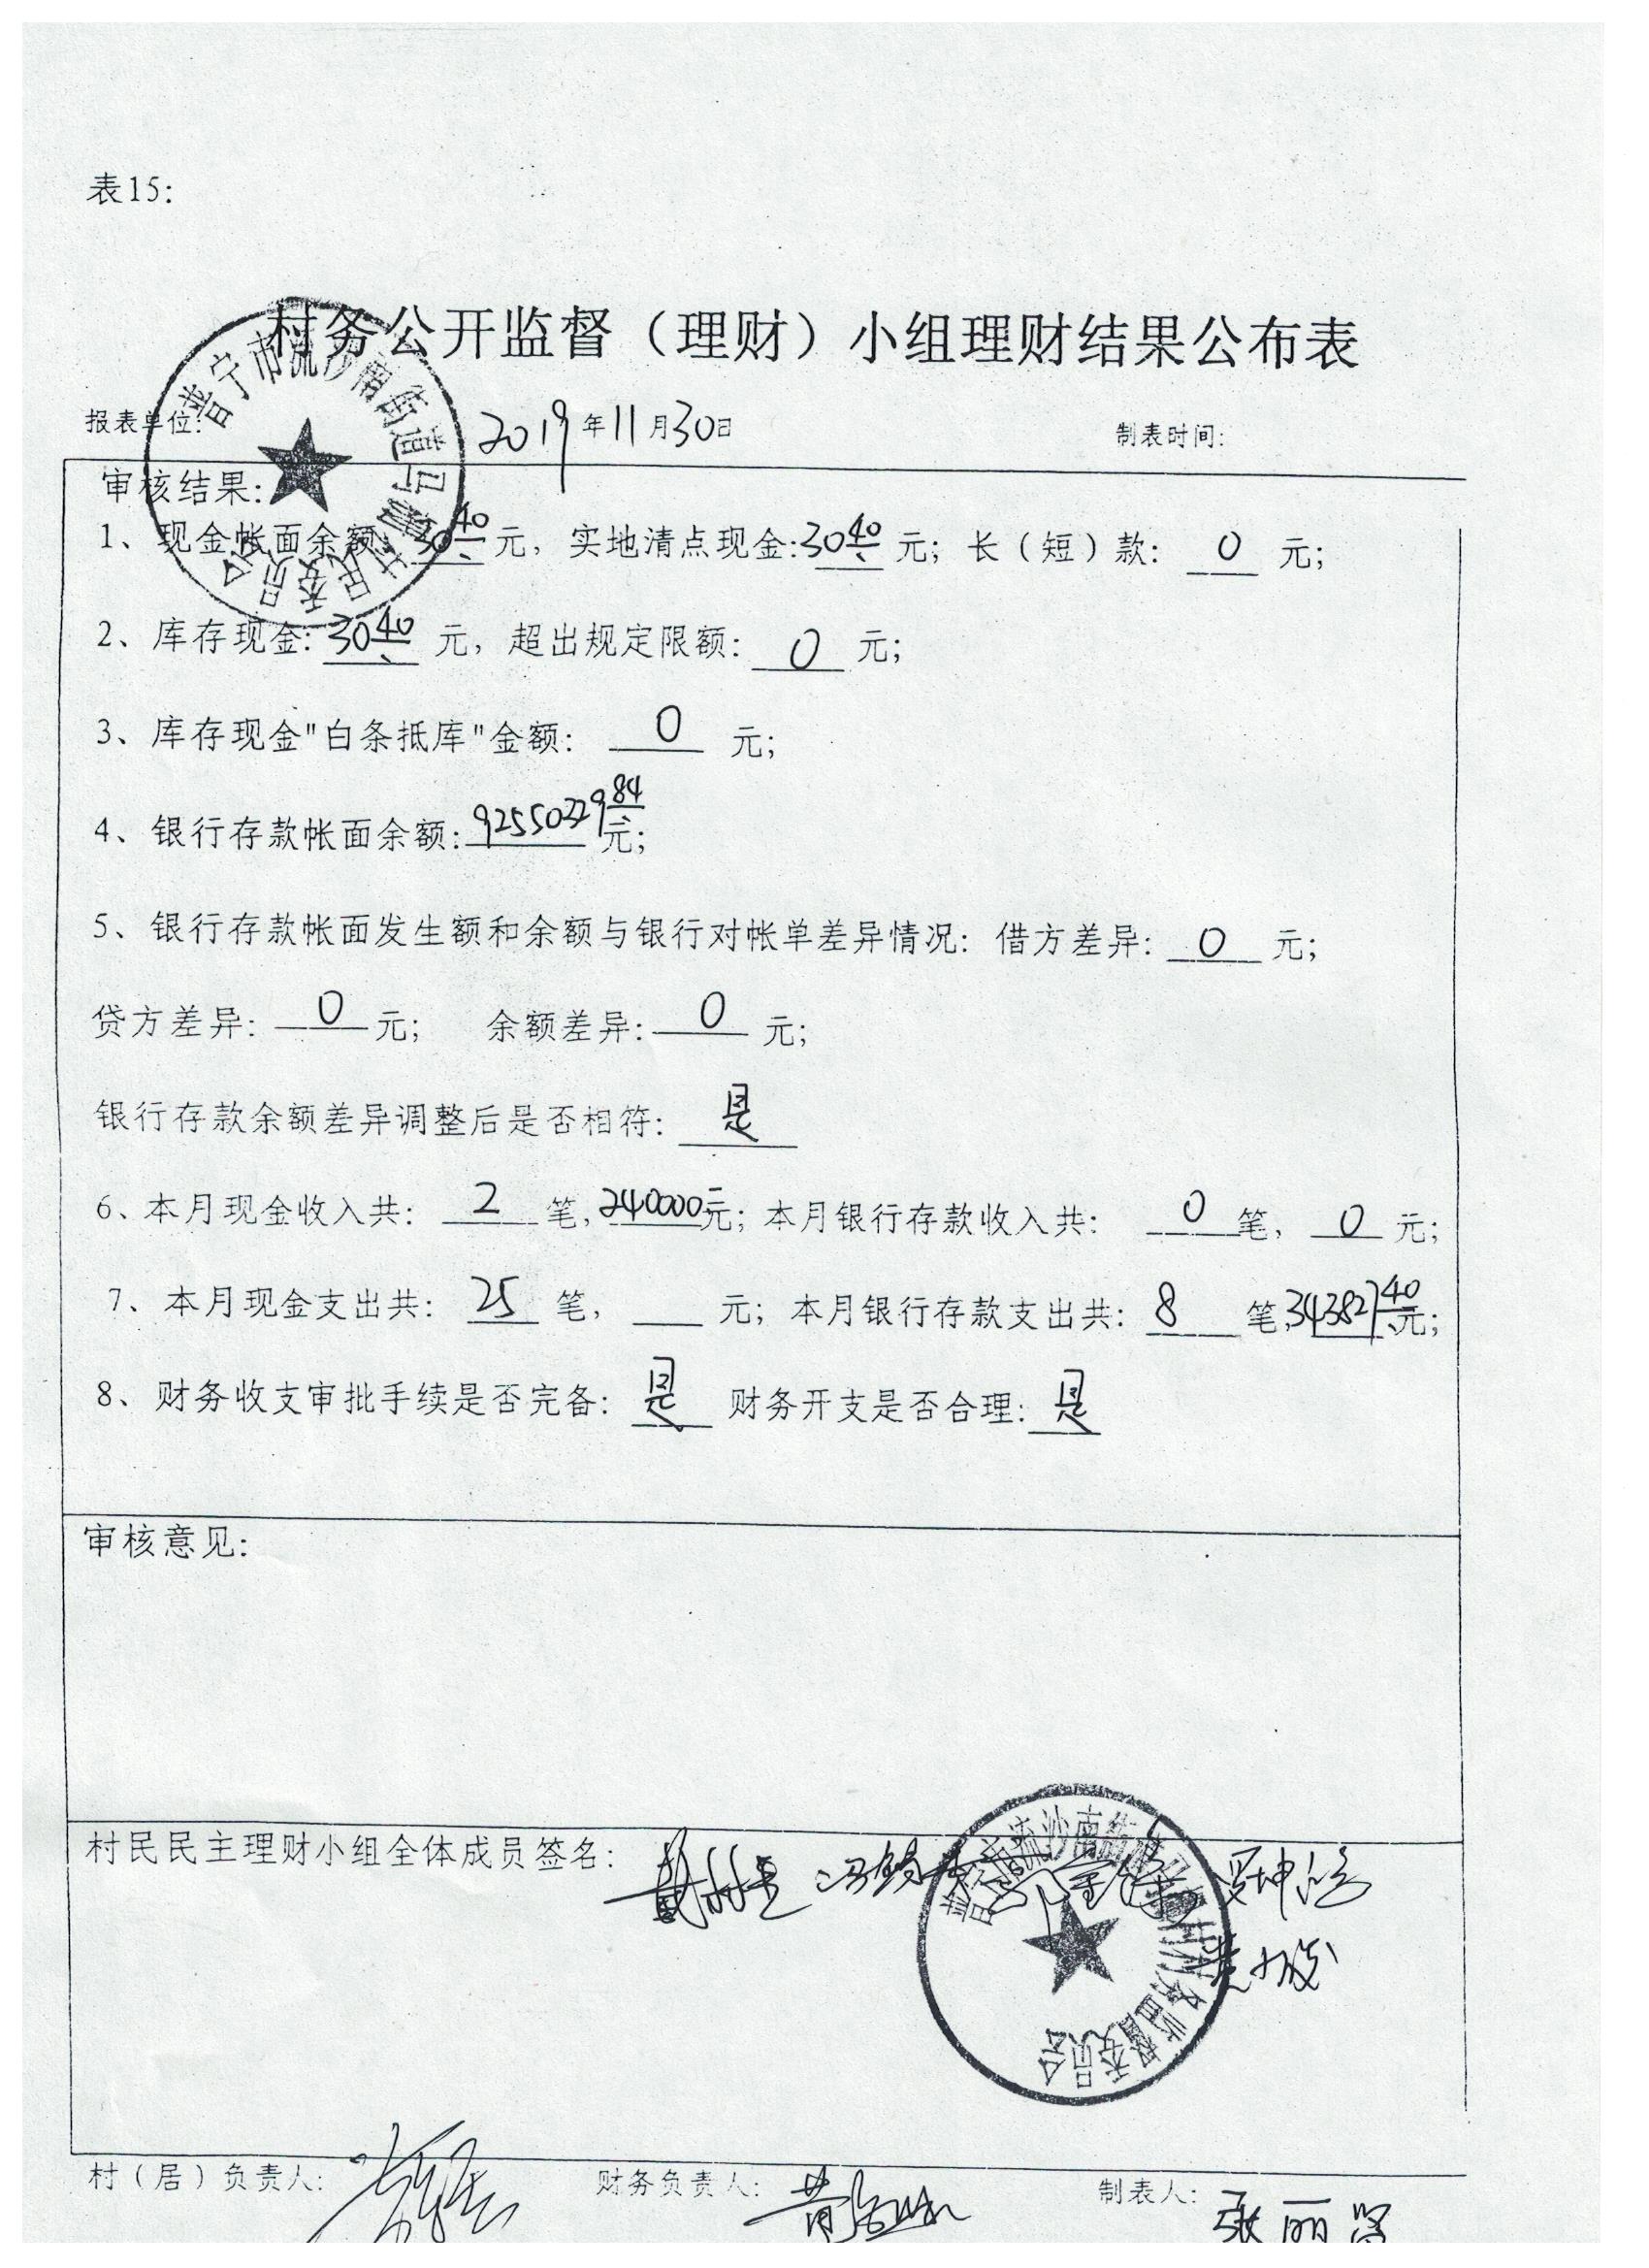 表15:
村务公开监督（理财）小组理财结果公布表
报表单位: 2019年11月30日 制表时间:
审核结果:
1、现金帐面余额:30.40元，实地清点现金:30.40元；长（短）款: 0 元；
2、库存现金:30.40元，超出规定限额: 0 元；
3、库存现金"白条抵库"金额: 0 元；
4、银行存款帐面余额:92550229.84元；
5、银行存款帐面发生额和余额与银行对帐单差异情况: 借方差异: 0 元；
贷方差异: 0 元； 余额差异: 0 元；
银行存款余额差异调整后是否相符: 是
6、本月现金收入共: 2 笔，240000元；本月银行存款收入共: 0 笔， 0 元；
7、本月现金支出共: 25 笔， 元；本月银行存款支出共: 8 笔，343827.40元；
8、财务收支审批手续是否完备: 是 财务开支是否合理: 是
审核意见:
村民民主理财小组全体成员签名:
村（居）负责人: 财务负责人: 制表人: 张丽